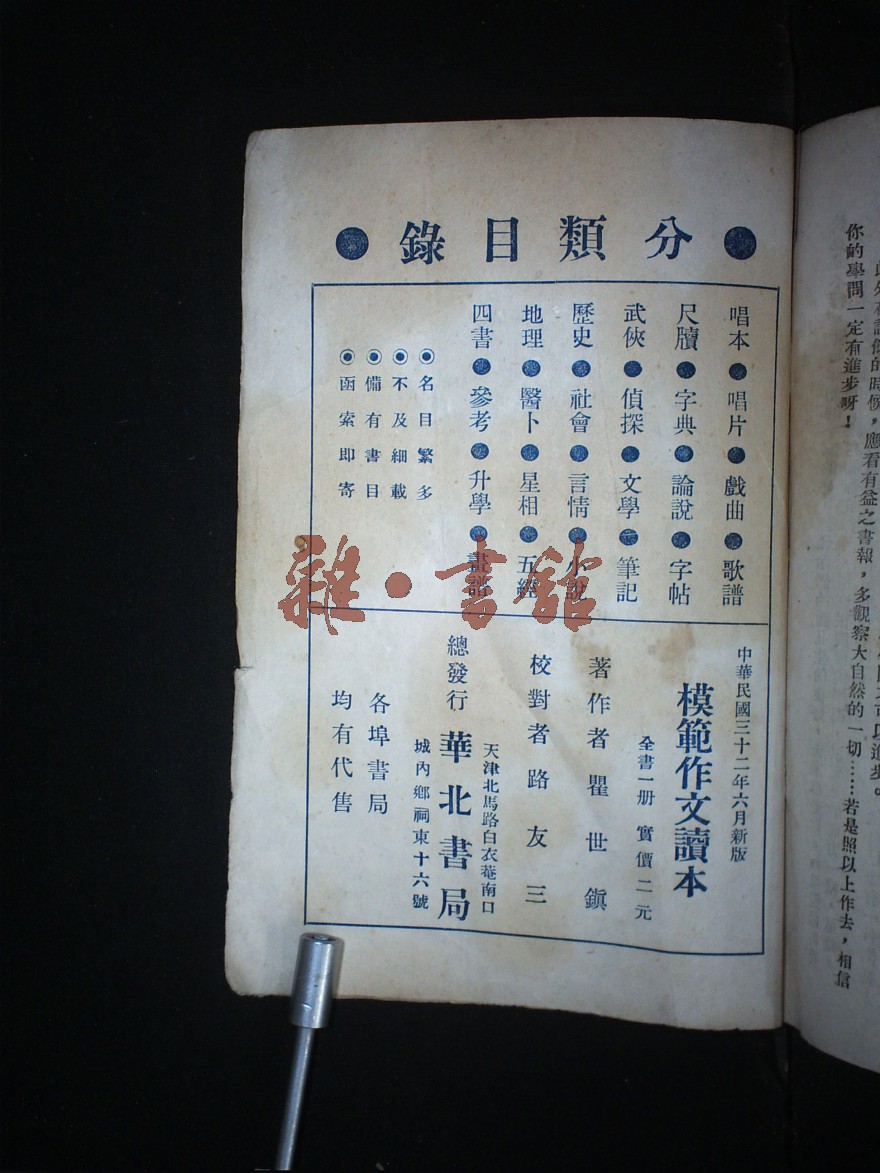 ●分類目錄●
唱本●唱片●戲曲●歌譜
尺牘●字典●論說●字帖
武俠●偵探●文學●筆記
歷史●社會●言情●小說
地理●醫卜●星相●五經
四書●參考●升學●畫譜
◉名目繁多
◉不及細載
◉備有書目
◉函索即寄
中華民國三十二年六月新版
模範作文讀本
全書一册 實價二元
著作者瞿世鎮
校對者路友三
天津北馬路白衣菴南口
總發行 華北書局
城內鄉祠東十六號
各埠書局
均有代售
雜·書館
時候，應看有益之書報，多觀察大自然的一切……若是照以上作去，相信
你的學問一定有進步呀！